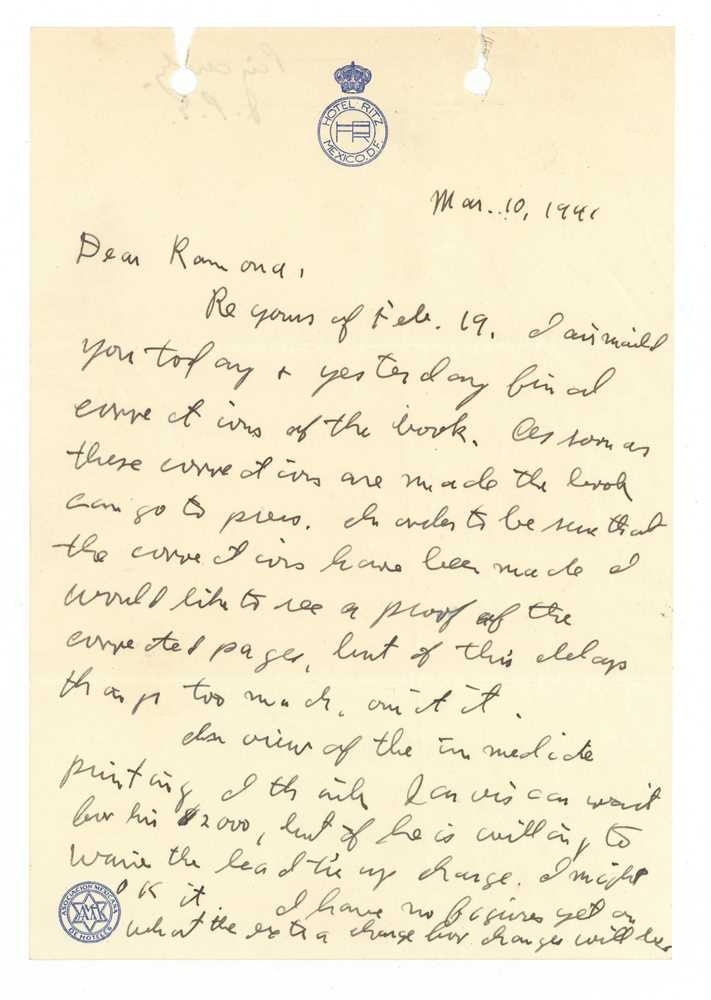 HOTEL RITZ
HR
MEXICO. D.F.
Mar. 10, 1941
Dear Ramona,
Re yours of Feb. 19. I airmaild
you today + yesterday final
corrections of the book. As soon as
these corrections are made the book
can go to press. In order to be sure that
the corrections have been made I
would like to see a proof of the
corrected pages, but if this delays
things too much, omit it.
In view of the immediate
printing I think can wait
for his $2000, but if he is willing to
waive the lead tie up charge, I might
OK it. I have no figures yet on
what the extra charge for changes will be.
ASOCIACION MEXICANA
AMH
DE HOTELES